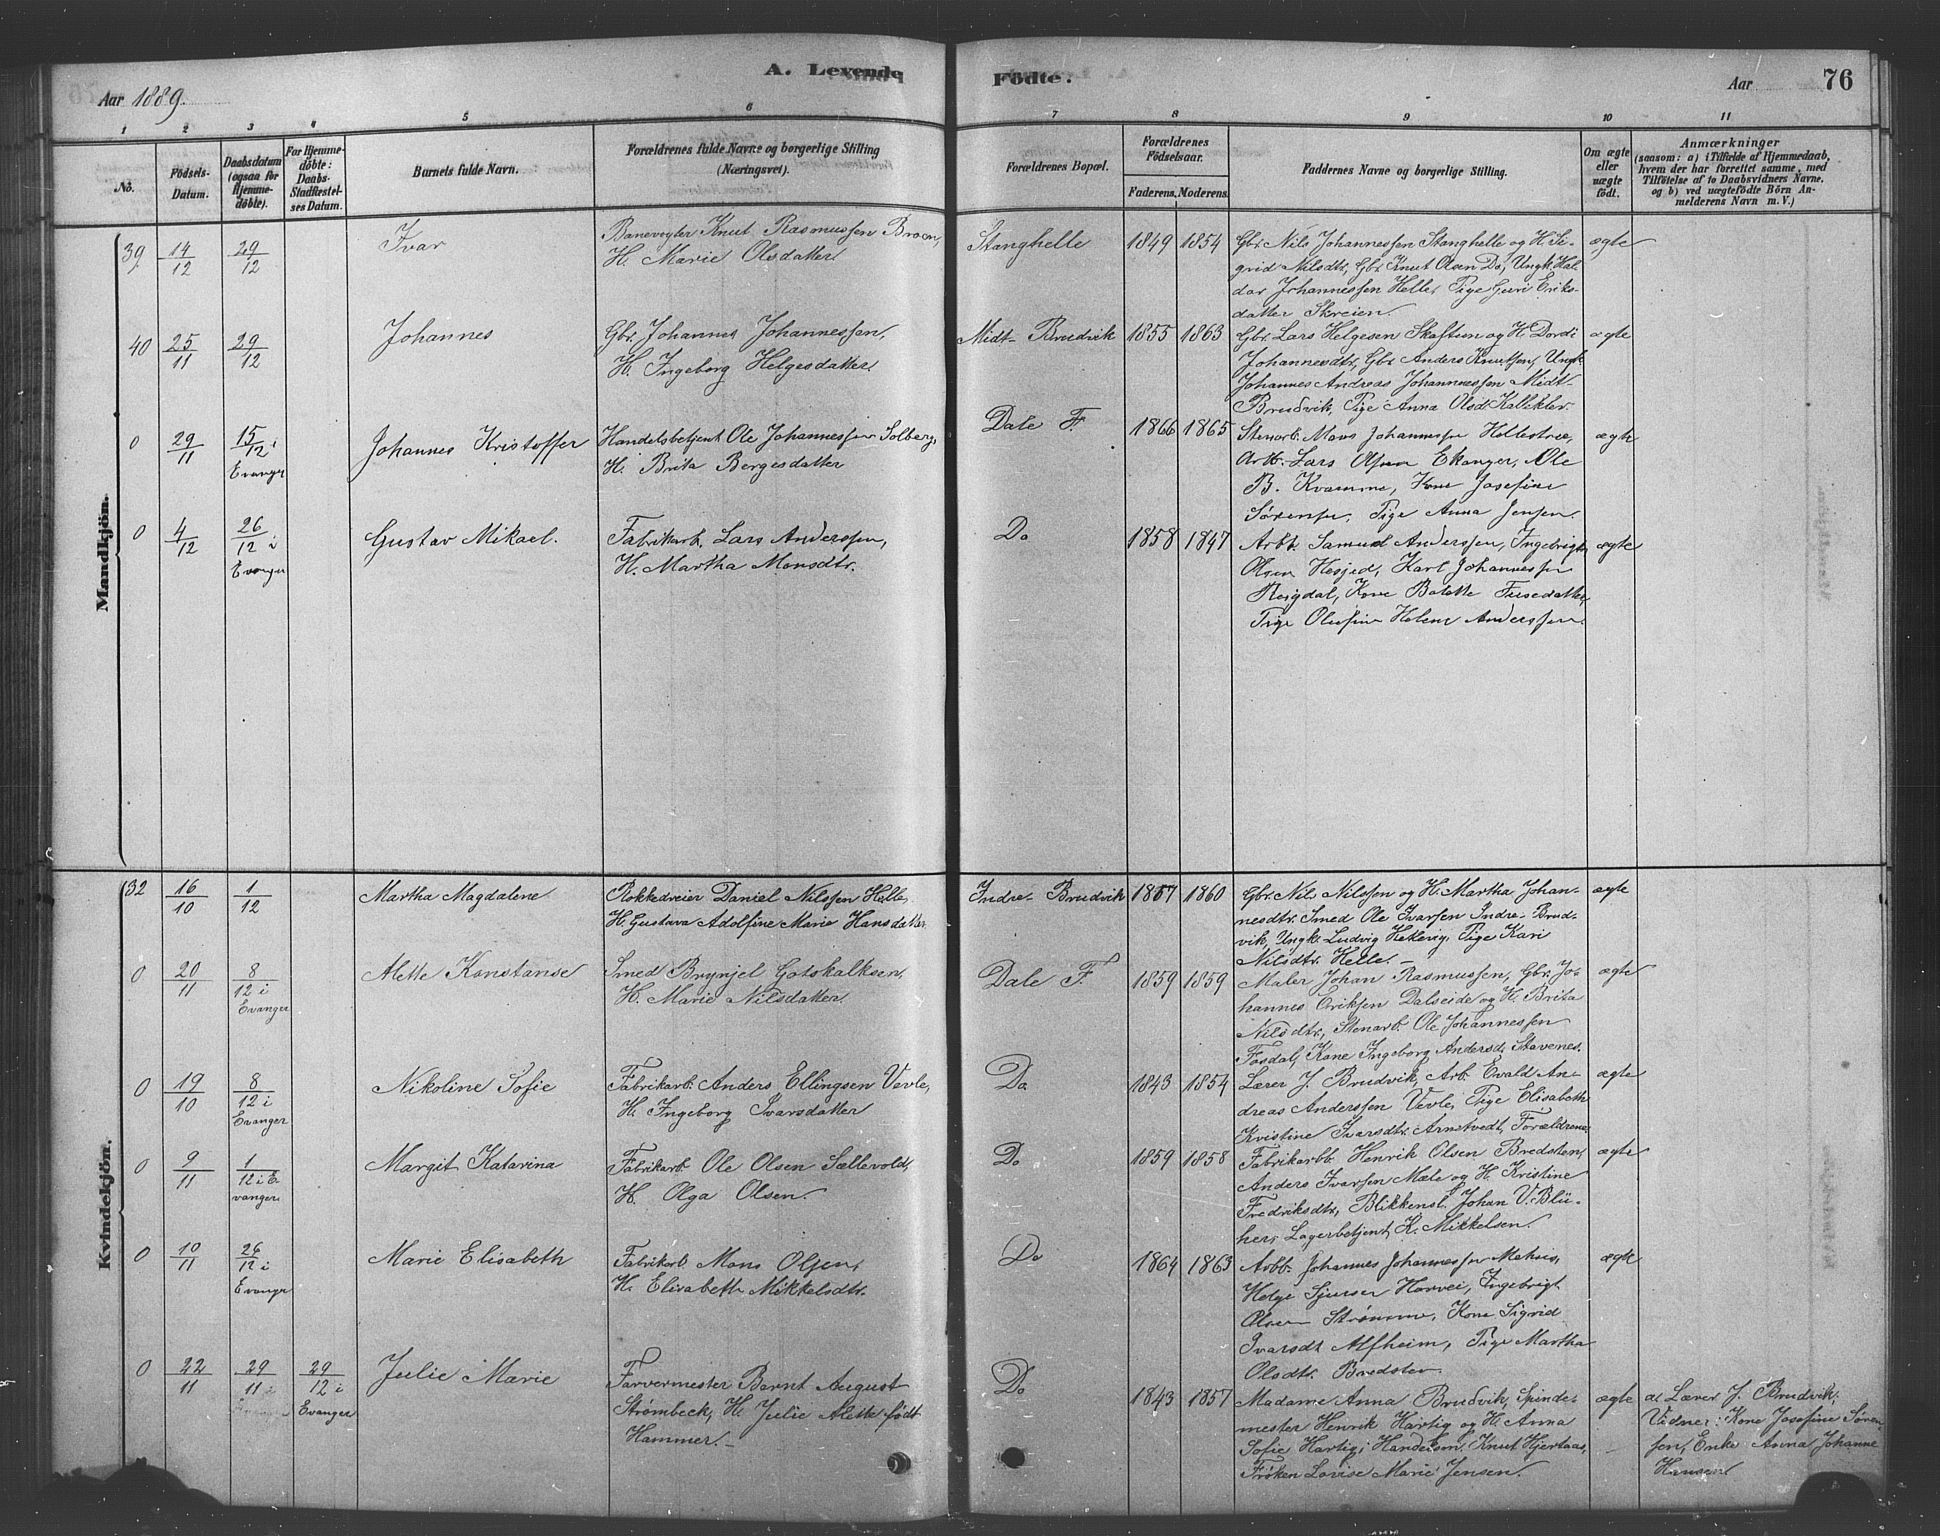 Aar 1889.
A. Levende
Fødte.
Aar
76
1 2 3 4 5 6 7 8 9 10 11
No.
Fødsels-
Datum.
Daabsdatum
(ogsaa for
Hjemme-
døbte).
For Hjemme-
døbte:
Daabs-
Stadfæstel-
ses Datum.
Barnets fulde Navn.
Forældrenes fulde Navne og borgerlige Stilling
(Næringsvei).
Forældrenes Bopæl.
Forældrenes
Fødselsaar.
Faderens. Moderens.
Faddernes Navne og borgerlige Stilling.
Om ægte
eller
uægte
født.
Anmærkninger
(saasom: a) i Tilfælde af Hjemmedaab,
hvem der har forrettet samme, med
Tilføielse af to Daabsvidners Navne,
og b) ved uægtefødte Børn An-
melderens Navn m. V.)
Mandkjön.
39 14/12 29/12
Ivar
Banevogter Knut Rasmussen Broen,
H. Marie Olsdatter.
Stanghelle
1849 1854
Gbr. Nils Johannessen Stanghelle og H. Si-
grid Nilsdtr., Gbr. Knut Olsen Do, Ungk. Hal-
dor Johannessen Helle, Pige Guri Eriks-
datter Skreien.
ægte
40 25/11 29/12
Johannes
Gbr. Johannes Johannessen,
H. Ingeborg Helgesdatter.
Midt-Brudvik
1855 1863
Gbr. Lars Helgesen Skaftun og H. Dordi
Johannesdtr., Gbr. Anders Knutsen, Ungk.
Johannes Andreas Johannessen Midt-
Brudvik, Pige Anna Olsd. Kalleklev.
ægte
0 29/11 15/12 i
Evanger
Johannes Kristoffer
Handelsbetjent Ole Johannessen Solberg,
H. Brita Bergesdatter
Dale F.
1866 1865
Stenarb. Mons Johannessen Hellestræ,
Arb. Lars Olsen Ekanger, Ole
B. Kvamme, Kone Josefine
Sørensen, Pige Anna Jensen.
ægte
0 4/12 26/12 i
Evanger
Gustav Mikael.
Fabrikarb. Lars Anderssen,
H. Martha Monsdtr.
Do
1858 1847
Arbb. Samuel Anderssen, Ingebrigt
Olsen Hesjed, Karl Johannessen
Reigdal, Kone Bolette Tusedatter,
Pige Olufine Helene Anderssen.
ægte
Kvindekjön.
32 16/10 1/12
Martha Magdalene
Rokkedreier Daniel Nilssen Helle,
H. Gustava Adolfine Marie Hansdatter.
Indre-Brudvik
1857 1860
Gbr. Nils Nilssen og H. Martha Johan-
nesdtr. Smed Ole Ivarsen Indre-Brud-
vik, Ungk. Ludvig Hekevig, Pige Kari
Nilsdtr. Helle.
ægte
0 20/11 8/12 i
Evanger
Alette Konstanse
Smed Brynjel Gotskalksen,
H. Marie Nilsdatter.
Dale F.
1859 1859
Maler Johan Rasmussen, Gbr. Jo-
hannes Eriksen Dalseide og H. Brita
Nilsdtr., Stenarb. Ole Johannessen
Fosdal, Kone Ingeborg Andersd. Stavenes.
ægte
0 19/10 8/12 i
Evanger
Nikoline Sofie
Fabrikarb. Anders Ellingsen Vevle,
H. Ingeborg Ivarsdatter
Do
1843 1854
Lærer J. Brudvik, Arb. Evald An-
dreas Anderssen Vevle, Pige Elisabeth
Kristine Ivarsdtr. Arnetvedt, Forældrene.
ægte
0 9/11 1/12 i E-
vanger
Margit Katarina
Fabrikarb. Ole Olsen Sællevold,
H. Olga Olsen.
Do
1859 1858
Fabrikarbb. Henrik Olsen Bredsten,
Anders Ivarsen Mæle og H. Kristine
Fredriksdtr., Blikkensl. Johan V. Blü-
her, Lagerbetjent K. Mikkelsen.
ægte
0 10/11 26/12 i
Evanger
Marie Elisabeth
Fabrikarb. Mons Olsen,
H. Elisabeth Mikkelsdtr.
Do
1864 1863
Arbb. Johannes Johannessen
Helge Sjursen Horvei, Ingebrigt
Olsen Strømme, Kone Sigrid
Ivarsdt. Alfheim, Pige Martha
Olsdtr. Bredsten.
ægte
0 22/11 29/11 i
Evanger
29/12 i
Evanger
Julie Marie
Farvermester Bernt August
Strømbeck, H. Julie Alette født
Hammer.
Do
1843 1857
Madame Anna Brudvik, Spinde-
mester Henrik Hartig og H. Anna
Sofie Hartig, Handelsm. Knut Hjertaas,
Frøken Lovise Marie Jensen.
ægte
a. Lærer J. Brudvik,
Vidner: Kone Josefine Søren-
sen, Enke Anna Johanne
Hansen.